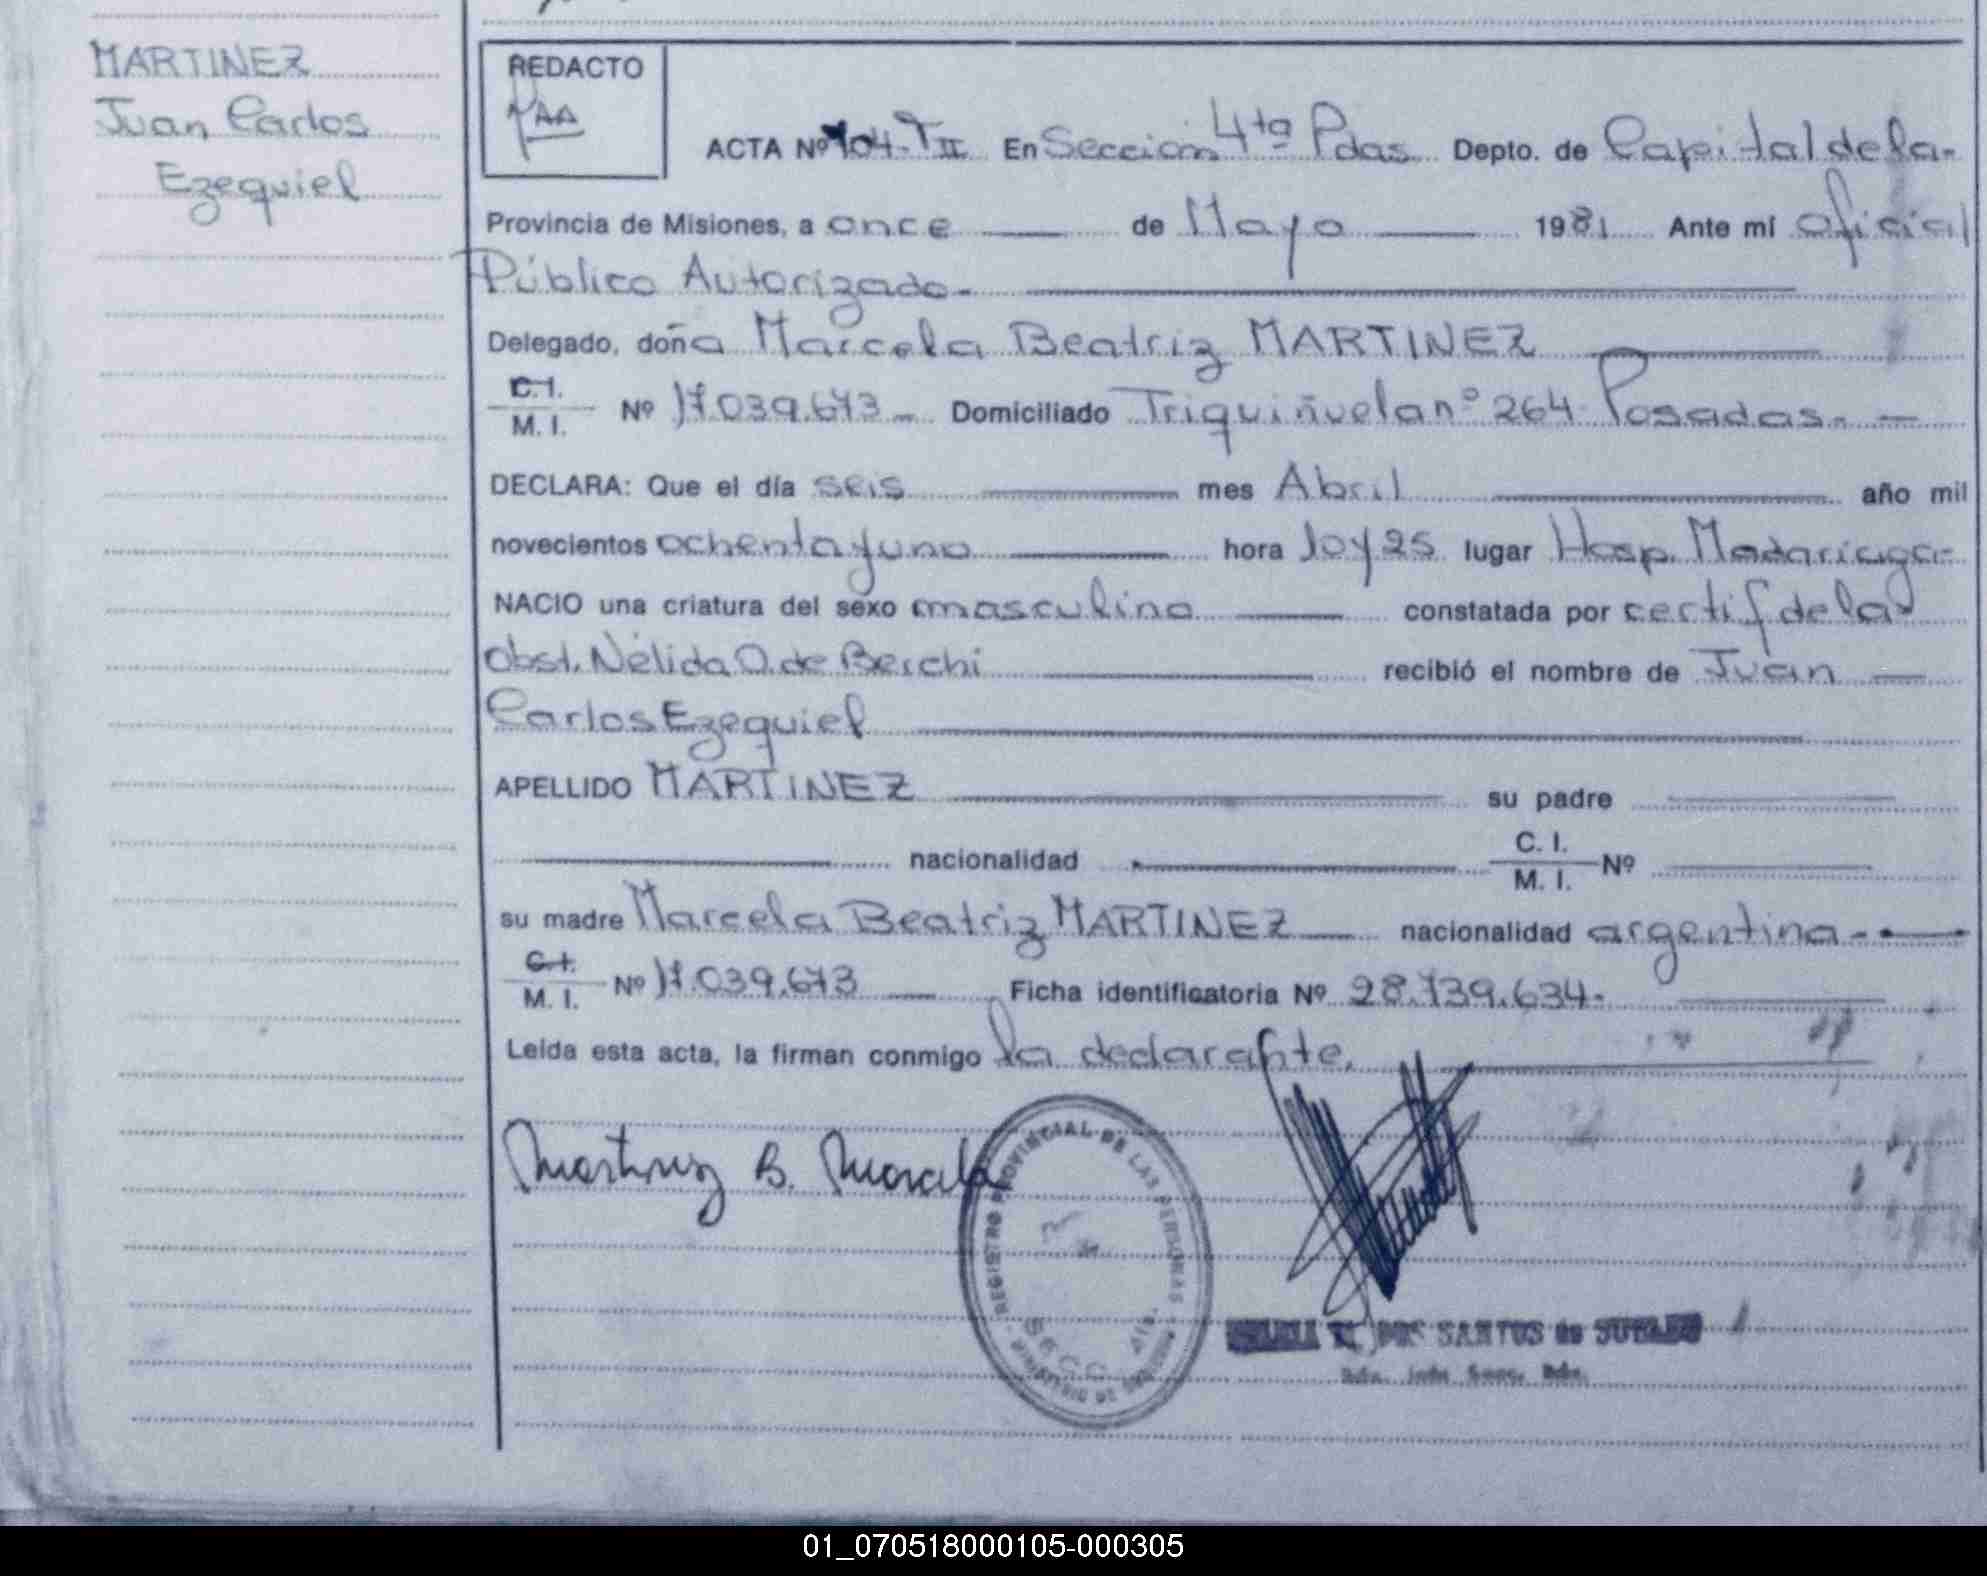 MARTINEZ
Juan Carlos
Ezequiel
REDACTO
ACTA Nº 704-T II En Sección 4ta Pdas. Depto. de Capital de la-
Provincia de Misiones, a once de Mayo 1981 Ante mí oficial
Público Autorizado-
Delegado, doña Marcela Beatriz MARTINEZ
C. I.
M. I. Nº 17.039.673 Domiciliado Triquiñuela nº 264 Posadas.-
DECLARA: Que el día seis mes Abril año mil
novecientos ochenta y uno hora 10 y 25 lugar Hosp. Madariaga-
NACIO una criatura del sexo masculino constatada por certif de la
obst. Nélida O. de Berchi recibió el nombre de Juan
Carlos Ezequiel
APELLIDO MARTINEZ su padre
nacionalidad C. I.
M. I. Nº
su madre Marcela Beatriz MARTINEZ nacionalidad argentina.-
C. I.
M. I. Nº 17.039.673 Ficha identificatoria Nº 28.739.634-
Leída esta acta, la firman conmigo la declarante.
Martinez B. Marcela
REGISTRO PROVINCIAL DE LAS PERSONAS
SECC. 4ta.
MINISTERIO DE GOBIERNO
DOS SANTOS de
01_070518000105-000305